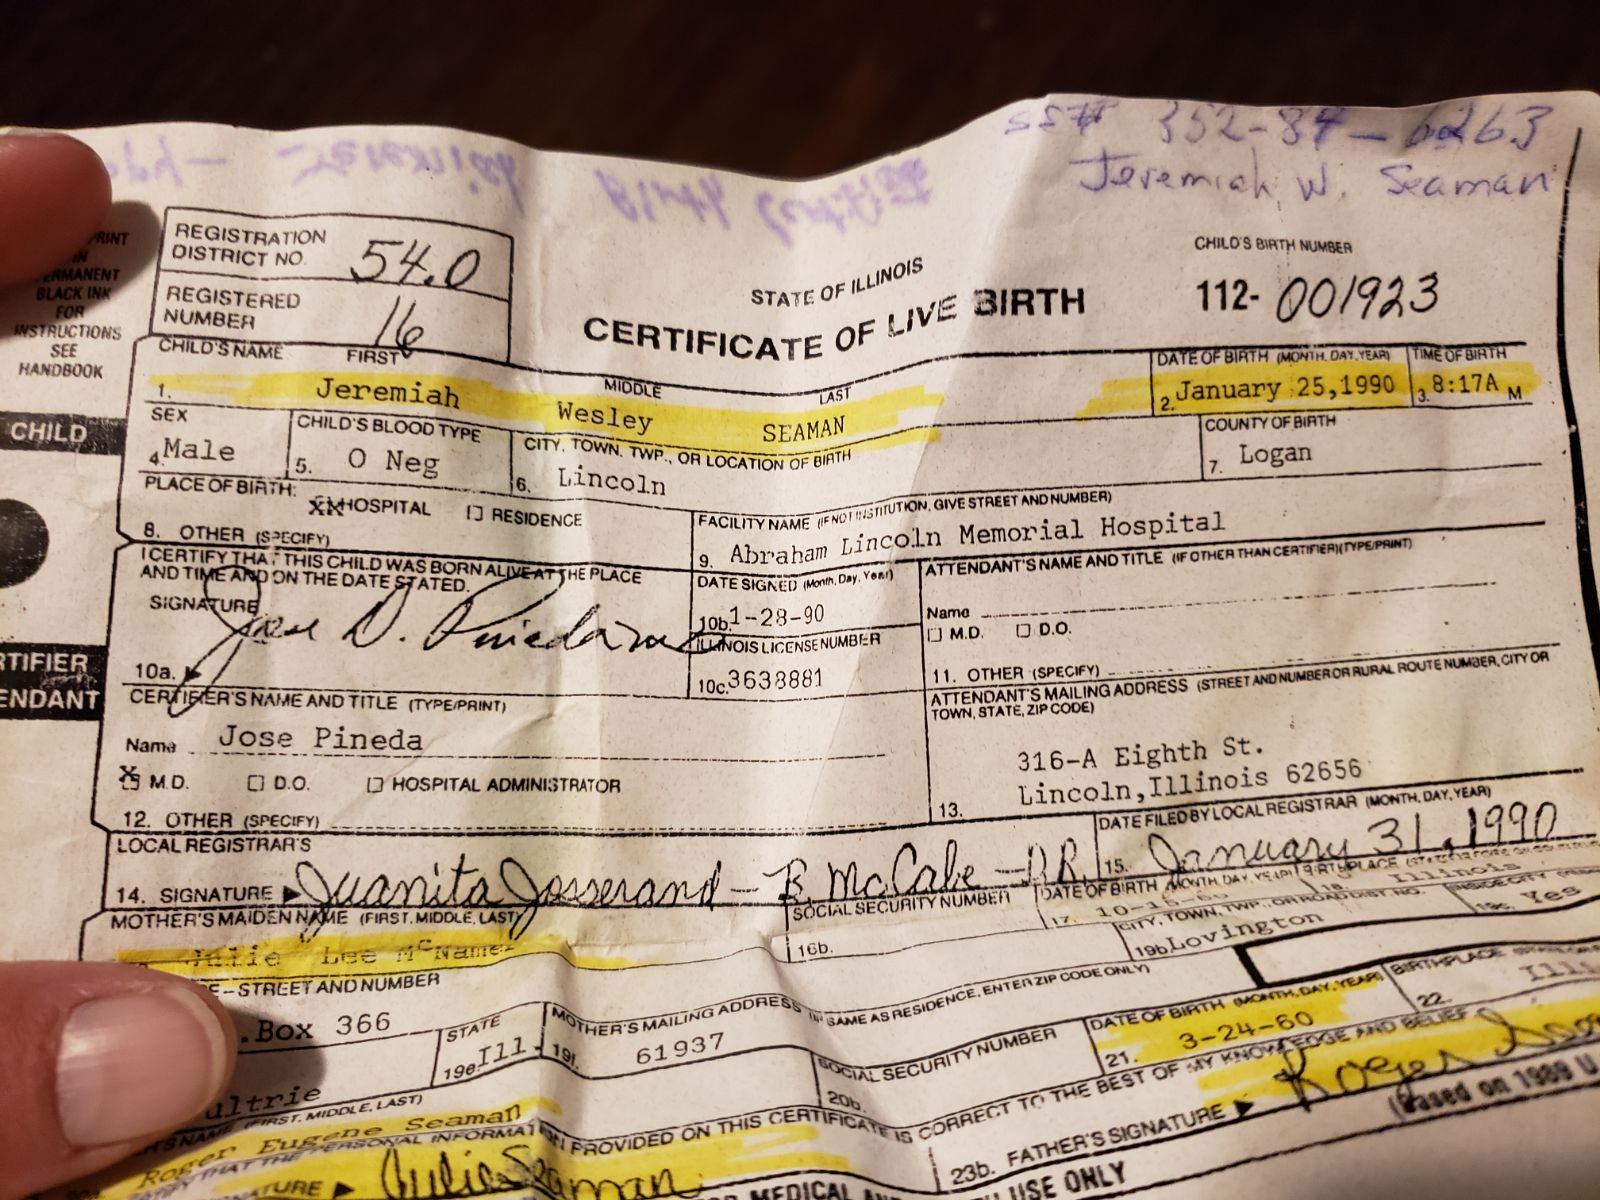 SS#
Jeremiah W. Seaman
REGISTRATION DISTRICT NO. 54.0
REGISTERED NUMBER 16
STATE OF ILLINOIS
CERTIFICATE OF LIVE BIRTH
CHILD'S BIRTH NUMBER
112- 001923
PERMANENT
BLACK INK
FOR
INSTRUCTIONS
SEE
HANDBOOK
CHILD
CHILD'S NAME FIRST MIDDLE LAST
1. Jeremiah Wesley SEAMAN
DATE OF BIRTH (MONTH, DAY, YEAR)
2. January 25,1990
TIME OF BIRTH
3. 8:17A M
SEX
4. Male
CHILD'S BLOOD TYPE
5. O Neg
CITY, TOWN, TWP., OR LOCATION OF BIRTH
6. Lincoln
COUNTY OF BIRTH
7. Logan
PLACE OF BIRTH:
HOSPITAL RESIDENCE
8. OTHER (SPECIFY)
FACILITY NAME (IF NOT INSTITUTION, GIVE STREET AND NUMBER)
9. Abraham Lincoln Memorial Hospital
I CERTIFY THAT THIS CHILD WAS BORN ALIVE AT THE PLACE
AND TIME AND ON THE DATE STATED.
SIGNATURE
10a.
DATE SIGNED (Month, Day, Year)
10b. 1-28-90
ILLINOIS LICENSE NUMBER
10c. 3638881
ATTENDANT'S NAME AND TITLE (IF OTHER THAN CERTIFIER)(TYPE/PRINT)
Name
M.D. D.O.
11. OTHER (SPECIFY)
CERTIFIER'S NAME AND TITLE (TYPE/PRINT)
Name Jose Pineda
X M.D. D.O. HOSPITAL ADMINISTRATOR
12. OTHER (SPECIFY)
ATTENDANT'S MAILING ADDRESS (STREET AND NUMBER OR RURAL ROUTE NUMBER, CITY OR
TOWN, STATE, ZIP CODE)
316-A Eighth St.
13. Lincoln,Illinois 62656
LOCAL REGISTRAR'S
14. SIGNATURE Juanita Josserand - B. McCabe - D.R.
DATE FILED BY LOCAL REGISTRAR (MONTH, DAY, YEAR)
15. January 31, 1990
MOTHER'S MAIDEN NAME (FIRST, MIDDLE, LAST)
Julie Lee
SOCIAL SECURITY NUMBER
16b.
DATE OF BIRTH (MONTH, DAY, YEAR)
17.
18. Illinois
STREET AND NUMBER
Box 366
CITY, TOWN, TWP., OR ROAD DIST NO.
19b. Lovington
19c. Yes
STATE
19e. Ill.
MOTHER'S MAILING ADDRESS (IF SAME AS RESIDENCE, ENTER ZIP CODE ONLY)
19f. 61937
ultrie
(FIRST, MIDDLE, LAST)
Roger Eugene Seaman
SOCIAL SECURITY NUMBER
20b.
DATE OF BIRTH (MONTH, DAY, YEAR)
21. 3-24-60
BIRTHPLACE
22.
PROVIDED ON THIS CERTIFICATE IS CORRECT TO THE BEST OF MY KNOWLEDGE AND BELIEF
Julie Seaman
23b. FATHER'S SIGNATURE Roger
(Based on 1989 U
USE ONLY